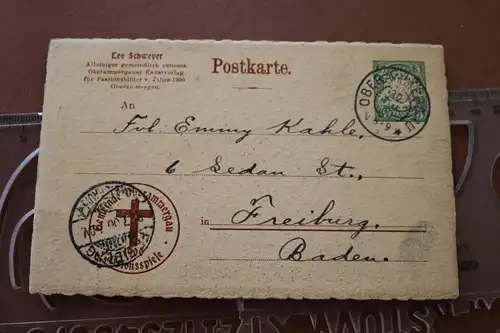 Leo Schweyer
Alleiniger gemeindlich
Oberammergauer Kunstverlag
für Passionsbilder v. Jahre 1900
Oberammergau.
Postkarte.
An
Frl. Emmy Kahle,
6 Sedan St.,
in Freiburg.
Baden.
Gemeinde Oberammergau
Passionsspiele